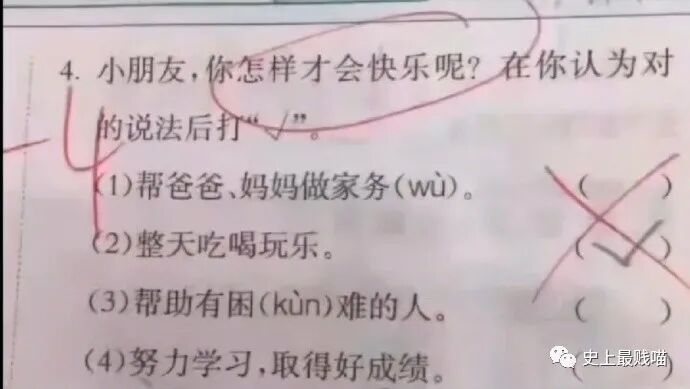 4. 小朋友,你怎样才会快乐呢?在你认为对
的说法后打“√”。
-4
(1)帮爸爸、妈妈做家务(wù)。 ( )
(2)整天吃喝玩乐。 (√)
(3)帮助有困(kùn)难的人。 ( )
(4)努力学习,取得好成绩。 ( )
史上最贱喵